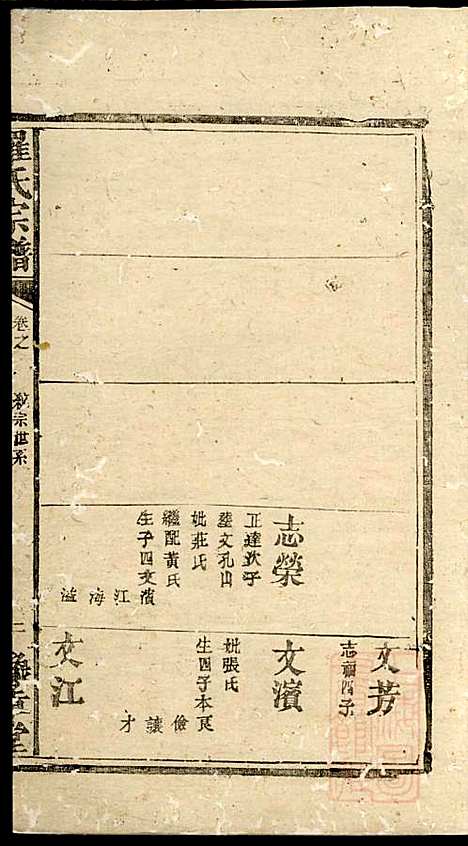 羅氏宗譜
卷之
世系
志榮
正達次子
葬文孔山
妣莊氏
繼配黃氏
生子四文濱
江海溢
文芳
志福四子
文濱
妣張氏
生四子本良
儉讓才
文江
堂